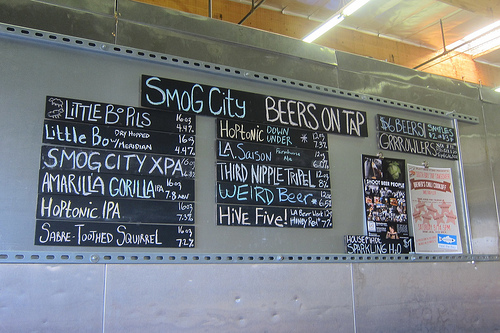 SMOG CITY BEERS ON TAP
LITTLE BO PILS 16oz 4.4%
Little Bo DRY HOPPED MERIDIAN 16oz 4.4%
SMOG CITY XPA 16oz
AMARILLA GORILLA IPA 16oz
HOPTONIC IPA 16oz 7.3%
SABRE-TOOTHED SQUIRREL 16oz 7%
HOPTONIC DOWN UNDER * 12oz 7.3%
L.A. SAISON Farmhouse Ale 12oz
THIRD NIPPLE TRIPEL 12oz 8%
WEIRD BEER * 12oz 6.5%
HIVE FIVE! 12oz 7%
$6 BEERS!
GRRROWLERS
SHOOT BEER PEOPLE
HOUSEMADE $1
SPARKLING H2O